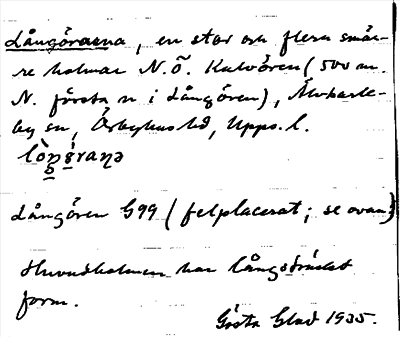 Långörarna, en stor och flera små-
re holmar N.Ö. Kalvören (500 m.
N. första n i Långören), Älvkarle-
by sn, Örbyhus hd, Upps. l.
Långören G99 (felplacerat; se ovan)
Huvudholmen har långsträckt
form.
Gösta Glad 1935.